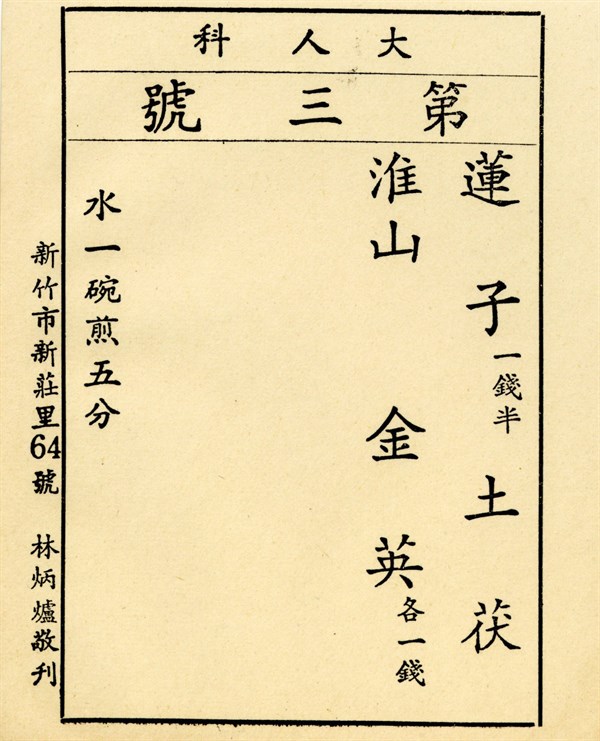 大人科
第三號
蓮子一錢半 土茯
淮山 金英各一錢
水一碗煎五分
新竹市新莊里64號 林炳爐敬刊